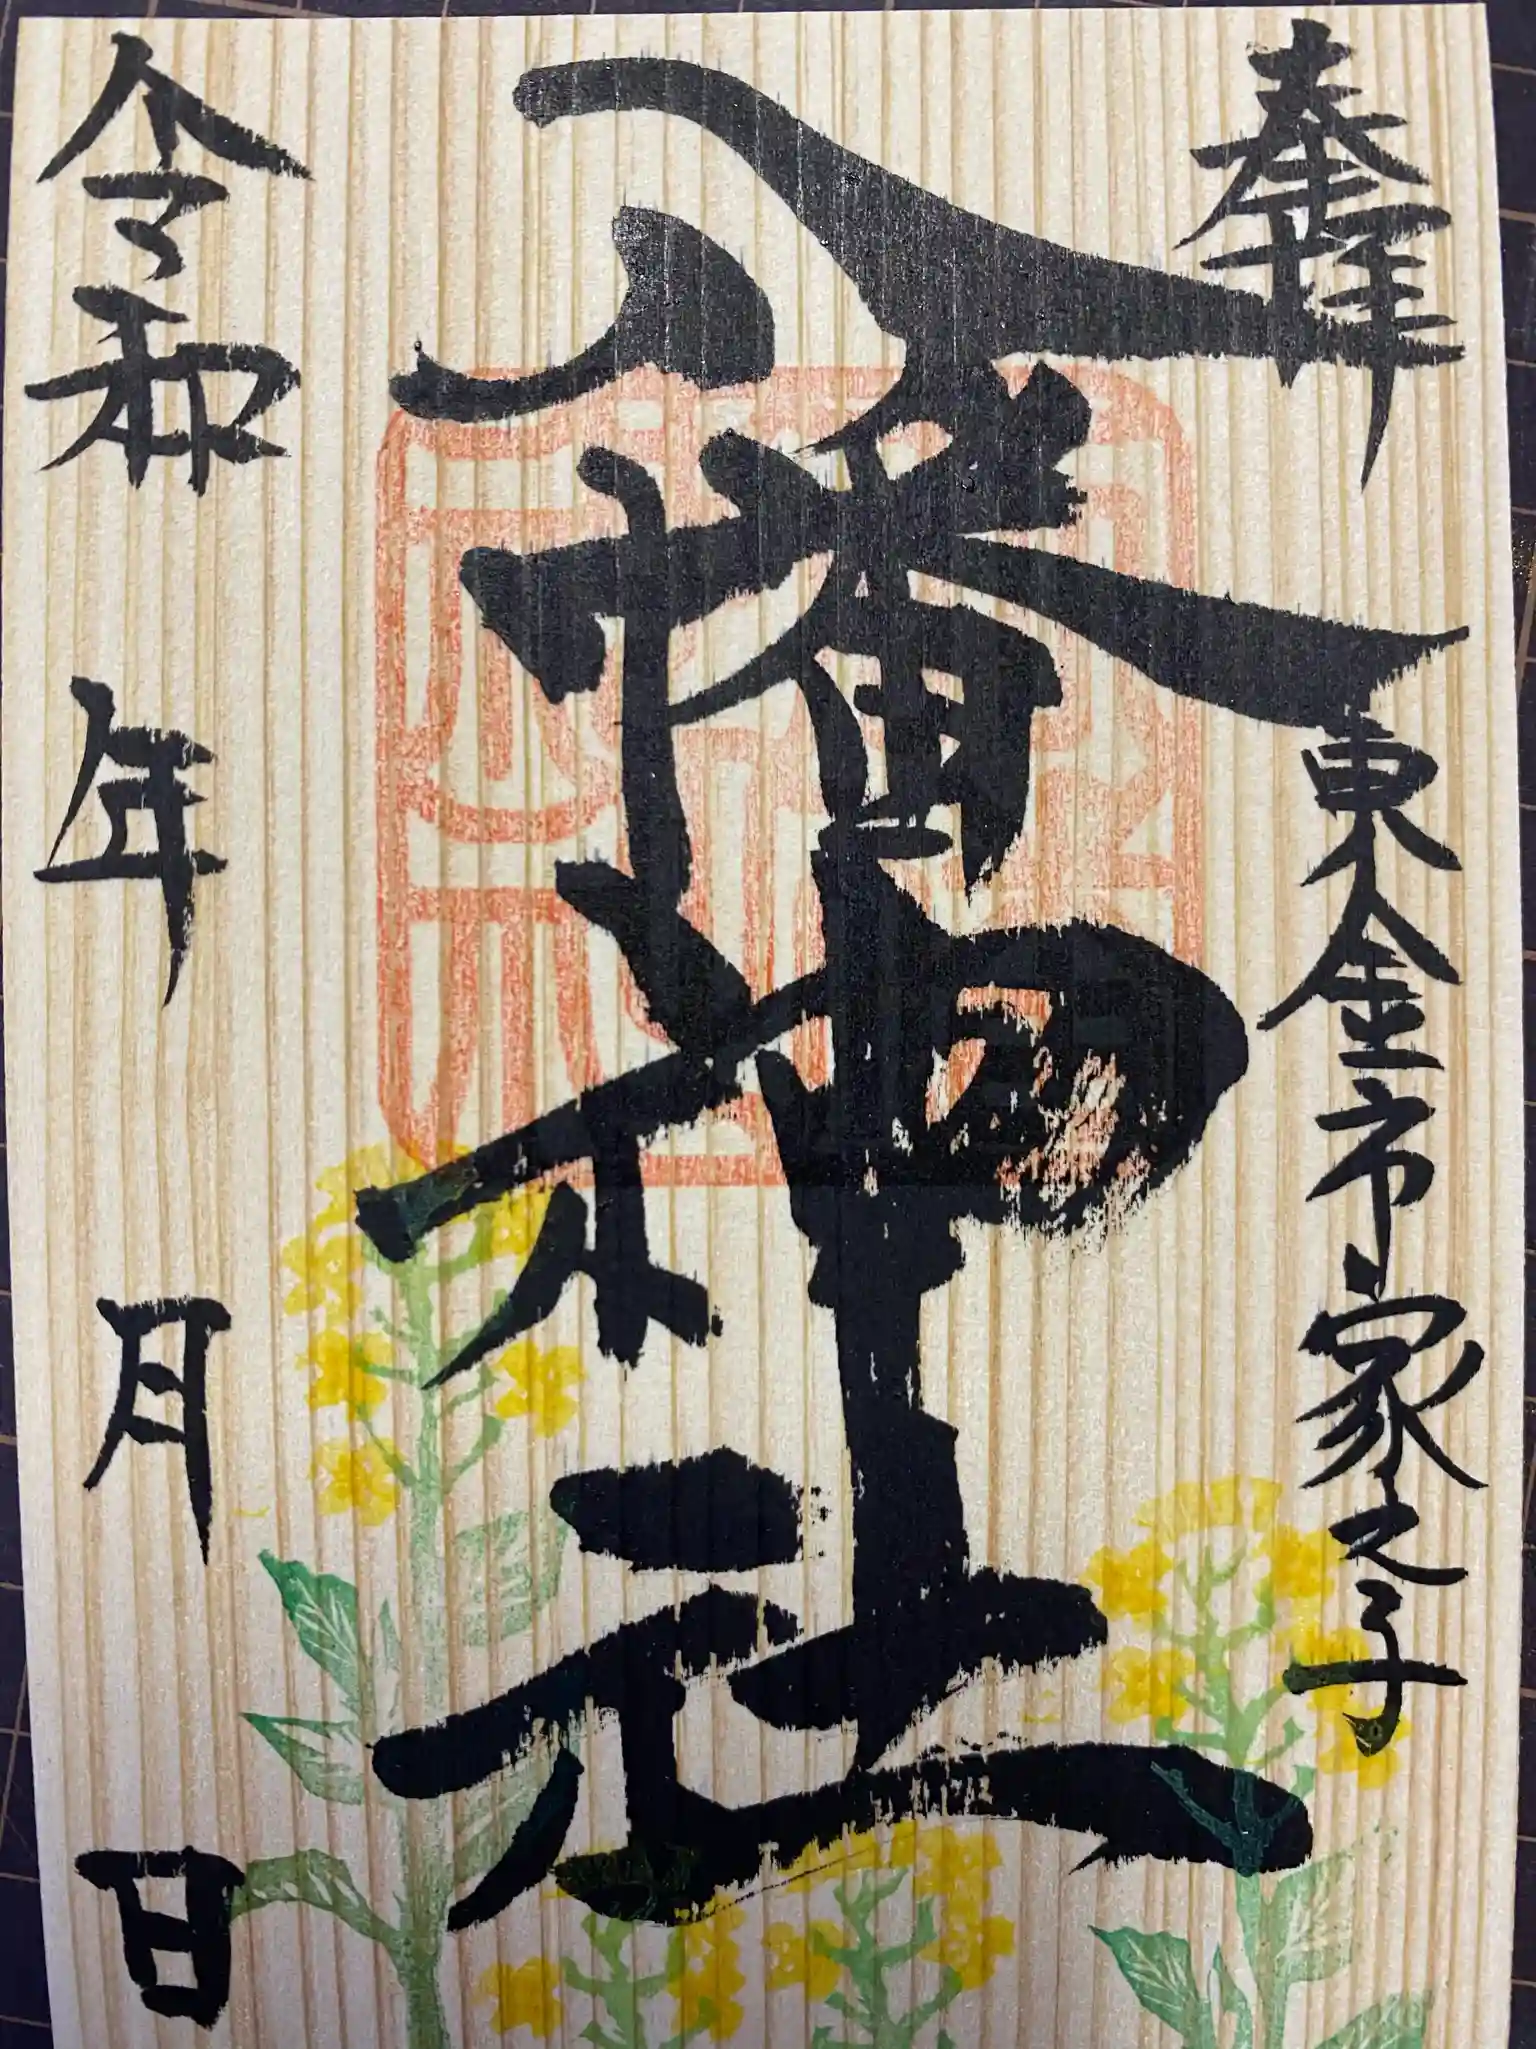 奉拝
東金市家之子
八幡神社
令和 年 月 日